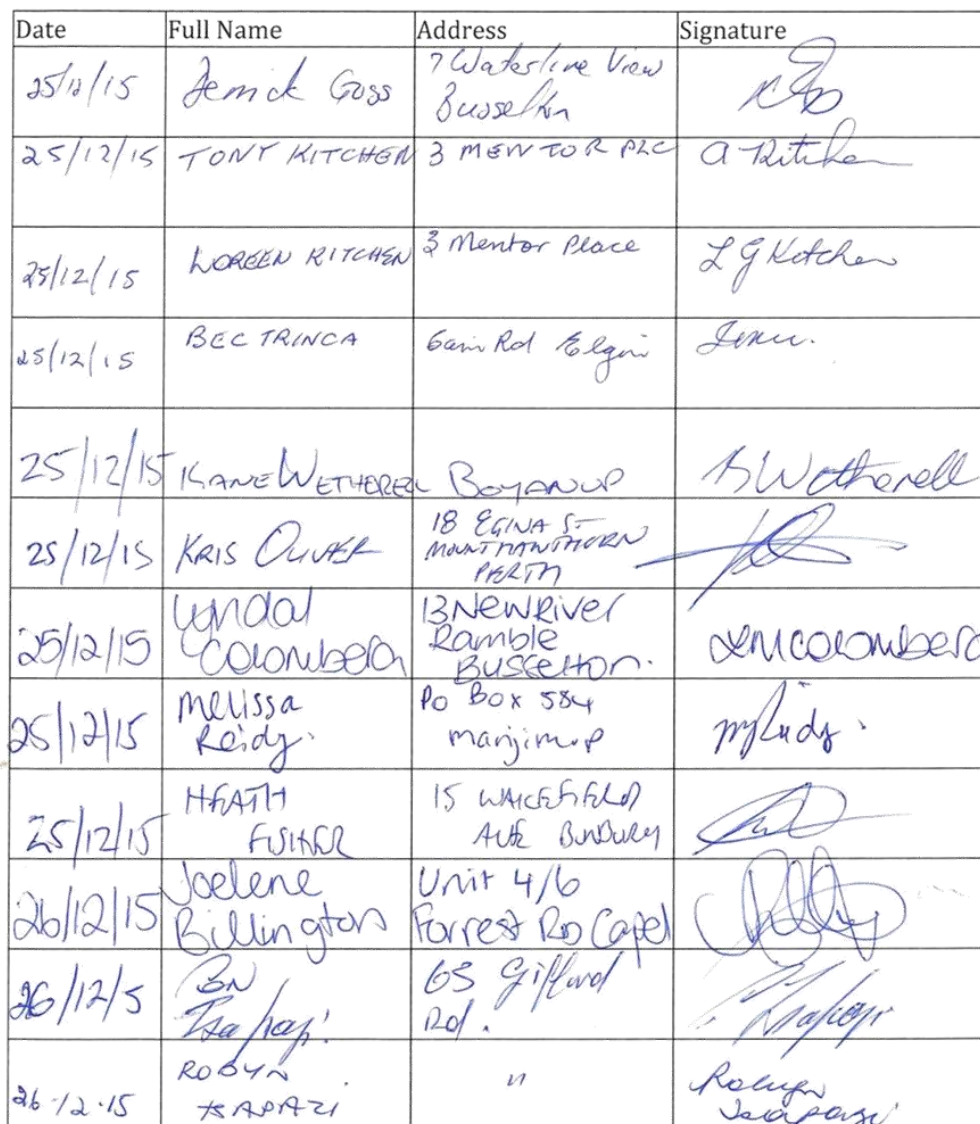 Date Full Name Address Signature
25/12/15 Derrick Goss 7 Waterline View
Busselton
25/12/15 TONY KITCHEN 3 MENTOR PLC A Kitchen
25/12/15 LOREEN KITCHEN 3 Mentor Place L G Kitchen
25/12/15 BEC TRINCA Rd Elgin
25/12/15 KANE WETHERELL BOYANUP K Wetherell
25/12/15 KRIS OLIVER 18 EGINA ST
MOUNT HAWTHORN
PERTH
25/12/15 Lyndal
Colombera
13 New River
Ramble
Busselton.
LM Colombera
25/12/15 Melissa
Reidy.
Po Box 584
manjimup
25/12/15 HEATH
FUSHER
15 WAKEFIELD
AVE BUNBURY
26/12/15 Joelene
Billington
Unit 4/6
Forrest RD Capel
26/12/5 BN
Tsapazi
63 Gifford
Rd.
Tsapazi
26-12-15 ROBYN
TSAPAZI
"
Robyn
Tsapazi